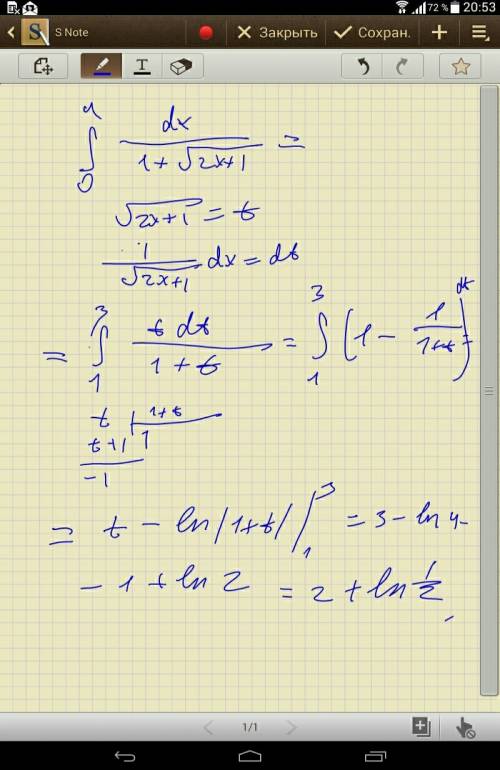 72 % 20:53
S Note Закрыть Сохран.
∫₀⁴ dx / (1 + √(2x+1)) =
√(2x+1) = t
1/√(2x+1) dx = dt
= ∫₁³ t dt / (1 + t) = ∫₁³ (1 - 1/(1+t)) dt =
t | 1+t
t+1 | 1
-1
= t - ln|1+t| |₁³ = 3 - ln 4 -
- 1 + ln 2 = 2 + ln 1/2.
1/1